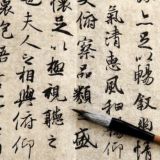 足以暢叙幽情
氣清惠風和
俯察品類盛
懷足以極視聽之
也夫人之相與俯仰